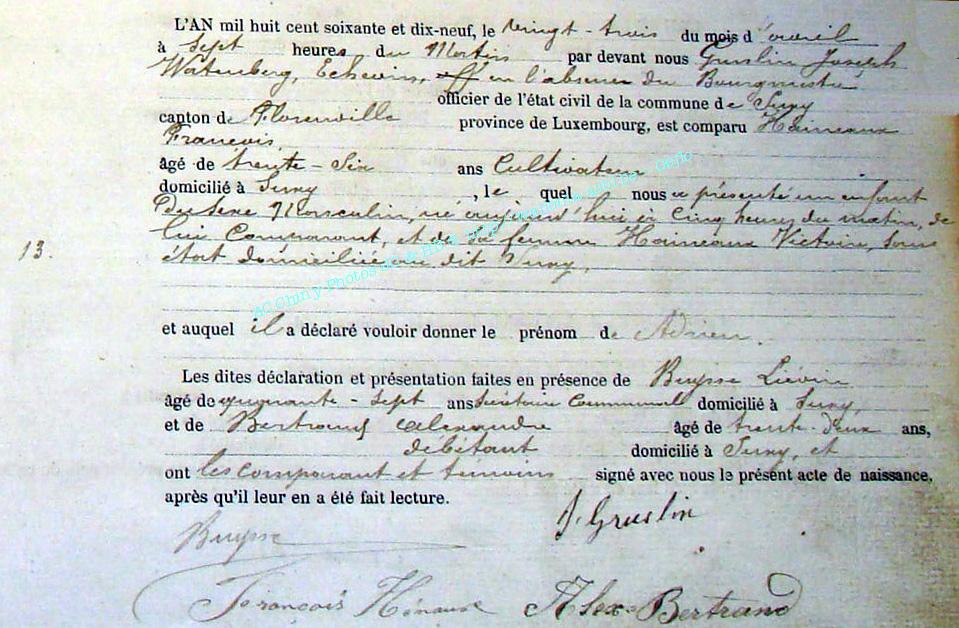 L'AN mil huit cent soixante et dix-neuf, le vingt-trois du mois d'avril
à sept heures du Matin par devant nous Gruslin Joseph
Échevin, off en l'absence du Bourgmestre
officier de l'état civil de la commune de Suxy
canton de Florenville province de Luxembourg, est comparu Haineaux
Francois,
âgé de trente-Six ans Cultivateur
domicilié à Suxy, le quel nous a présenté un enfant
Du sexe Masculin, né aujourd'hui à Cinq heures du matin, de
13.
lui Comparant, et de Sa femme Haineaux Victoire, Sans
état domiciliée au dit Suxy,
AC Chiny Photos
et auquel il a déclaré vouloir donner le prénom de Adrien.
Les dites déclaration et présentation faites en présence de Buysse Liévin
âgé de quarante-sept ans Secrétaire Communal domicilié à Suxy,
et de Bertrand Alexandre âgé de trente-deux ans,
débitant domicilié à Suxy, et
ont les comparant et témoins signé avec nous le présent acte de naissance,
après qu'il leur en a été fait lecture.
J. Gruslin
Buysse
François Hénaux Alex Bertrand